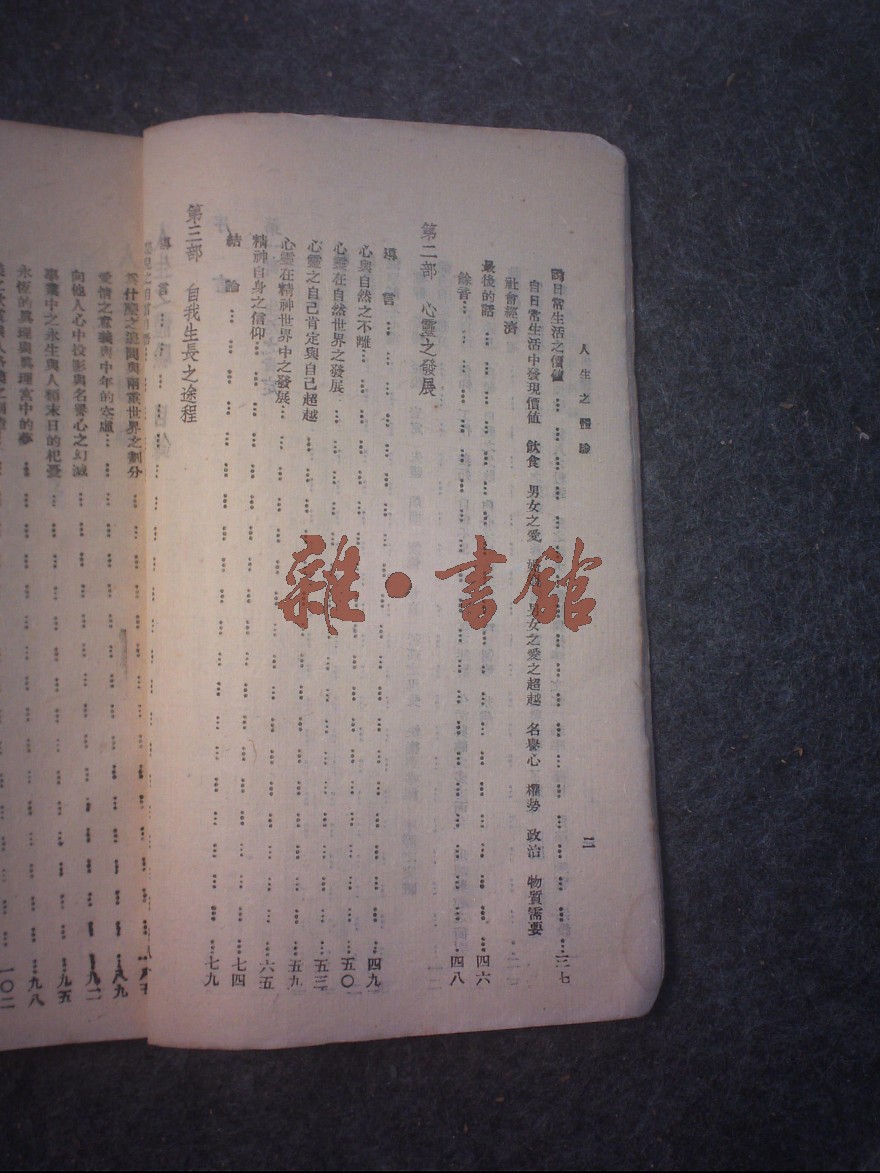 人生之體論
二
日常生活之價值 三七
自日常生活中發現價值 飲食 男女之愛 男女之愛之超越 名譽心 權勢 政治 物質需要
社會經濟
最後的話 四六
餘音 四八
第二部 心靈之發展
導言 四九
心與自然之不離 五〇
心靈在自然世界之發展 五三
心靈之自己肯定與自己超越 五九
心靈在精神世界中之發展 六五
精神自身之信仰 七四
結論 七九
第三部 自我生長之途程
導言
為什麼之追問與兩重世界之劃分 八九
愛情之意義與中年的空虛 九二
向他人心中投影與名譽心之幻滅 九五
事業中之永生與人類末日的杞憂 九八
永恆的真理與真理宮中的夢 一〇二
雜·書館